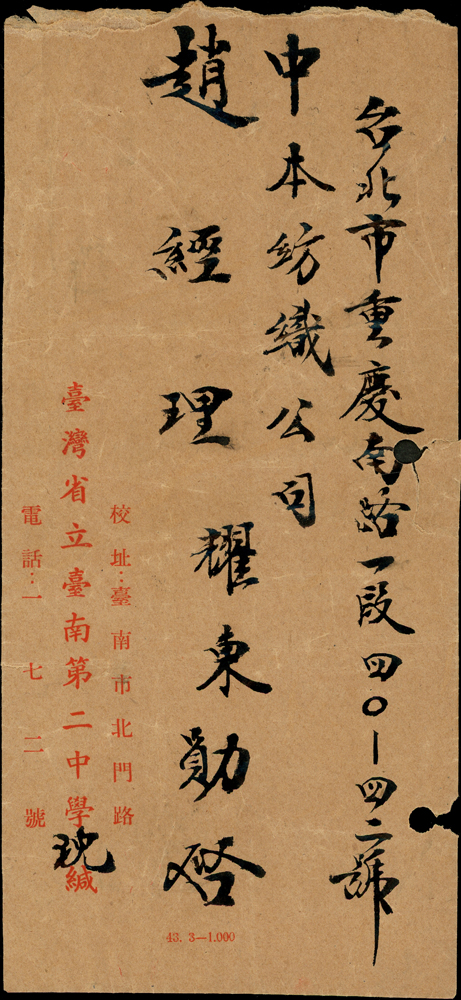 台北市重慶南路一段四〇|四二號
中本紡織公司
趙經理耀東勛啓
校址：臺南市北門路
臺灣省立臺南第二中學緘
電話：一七二號
43. 3—1.000